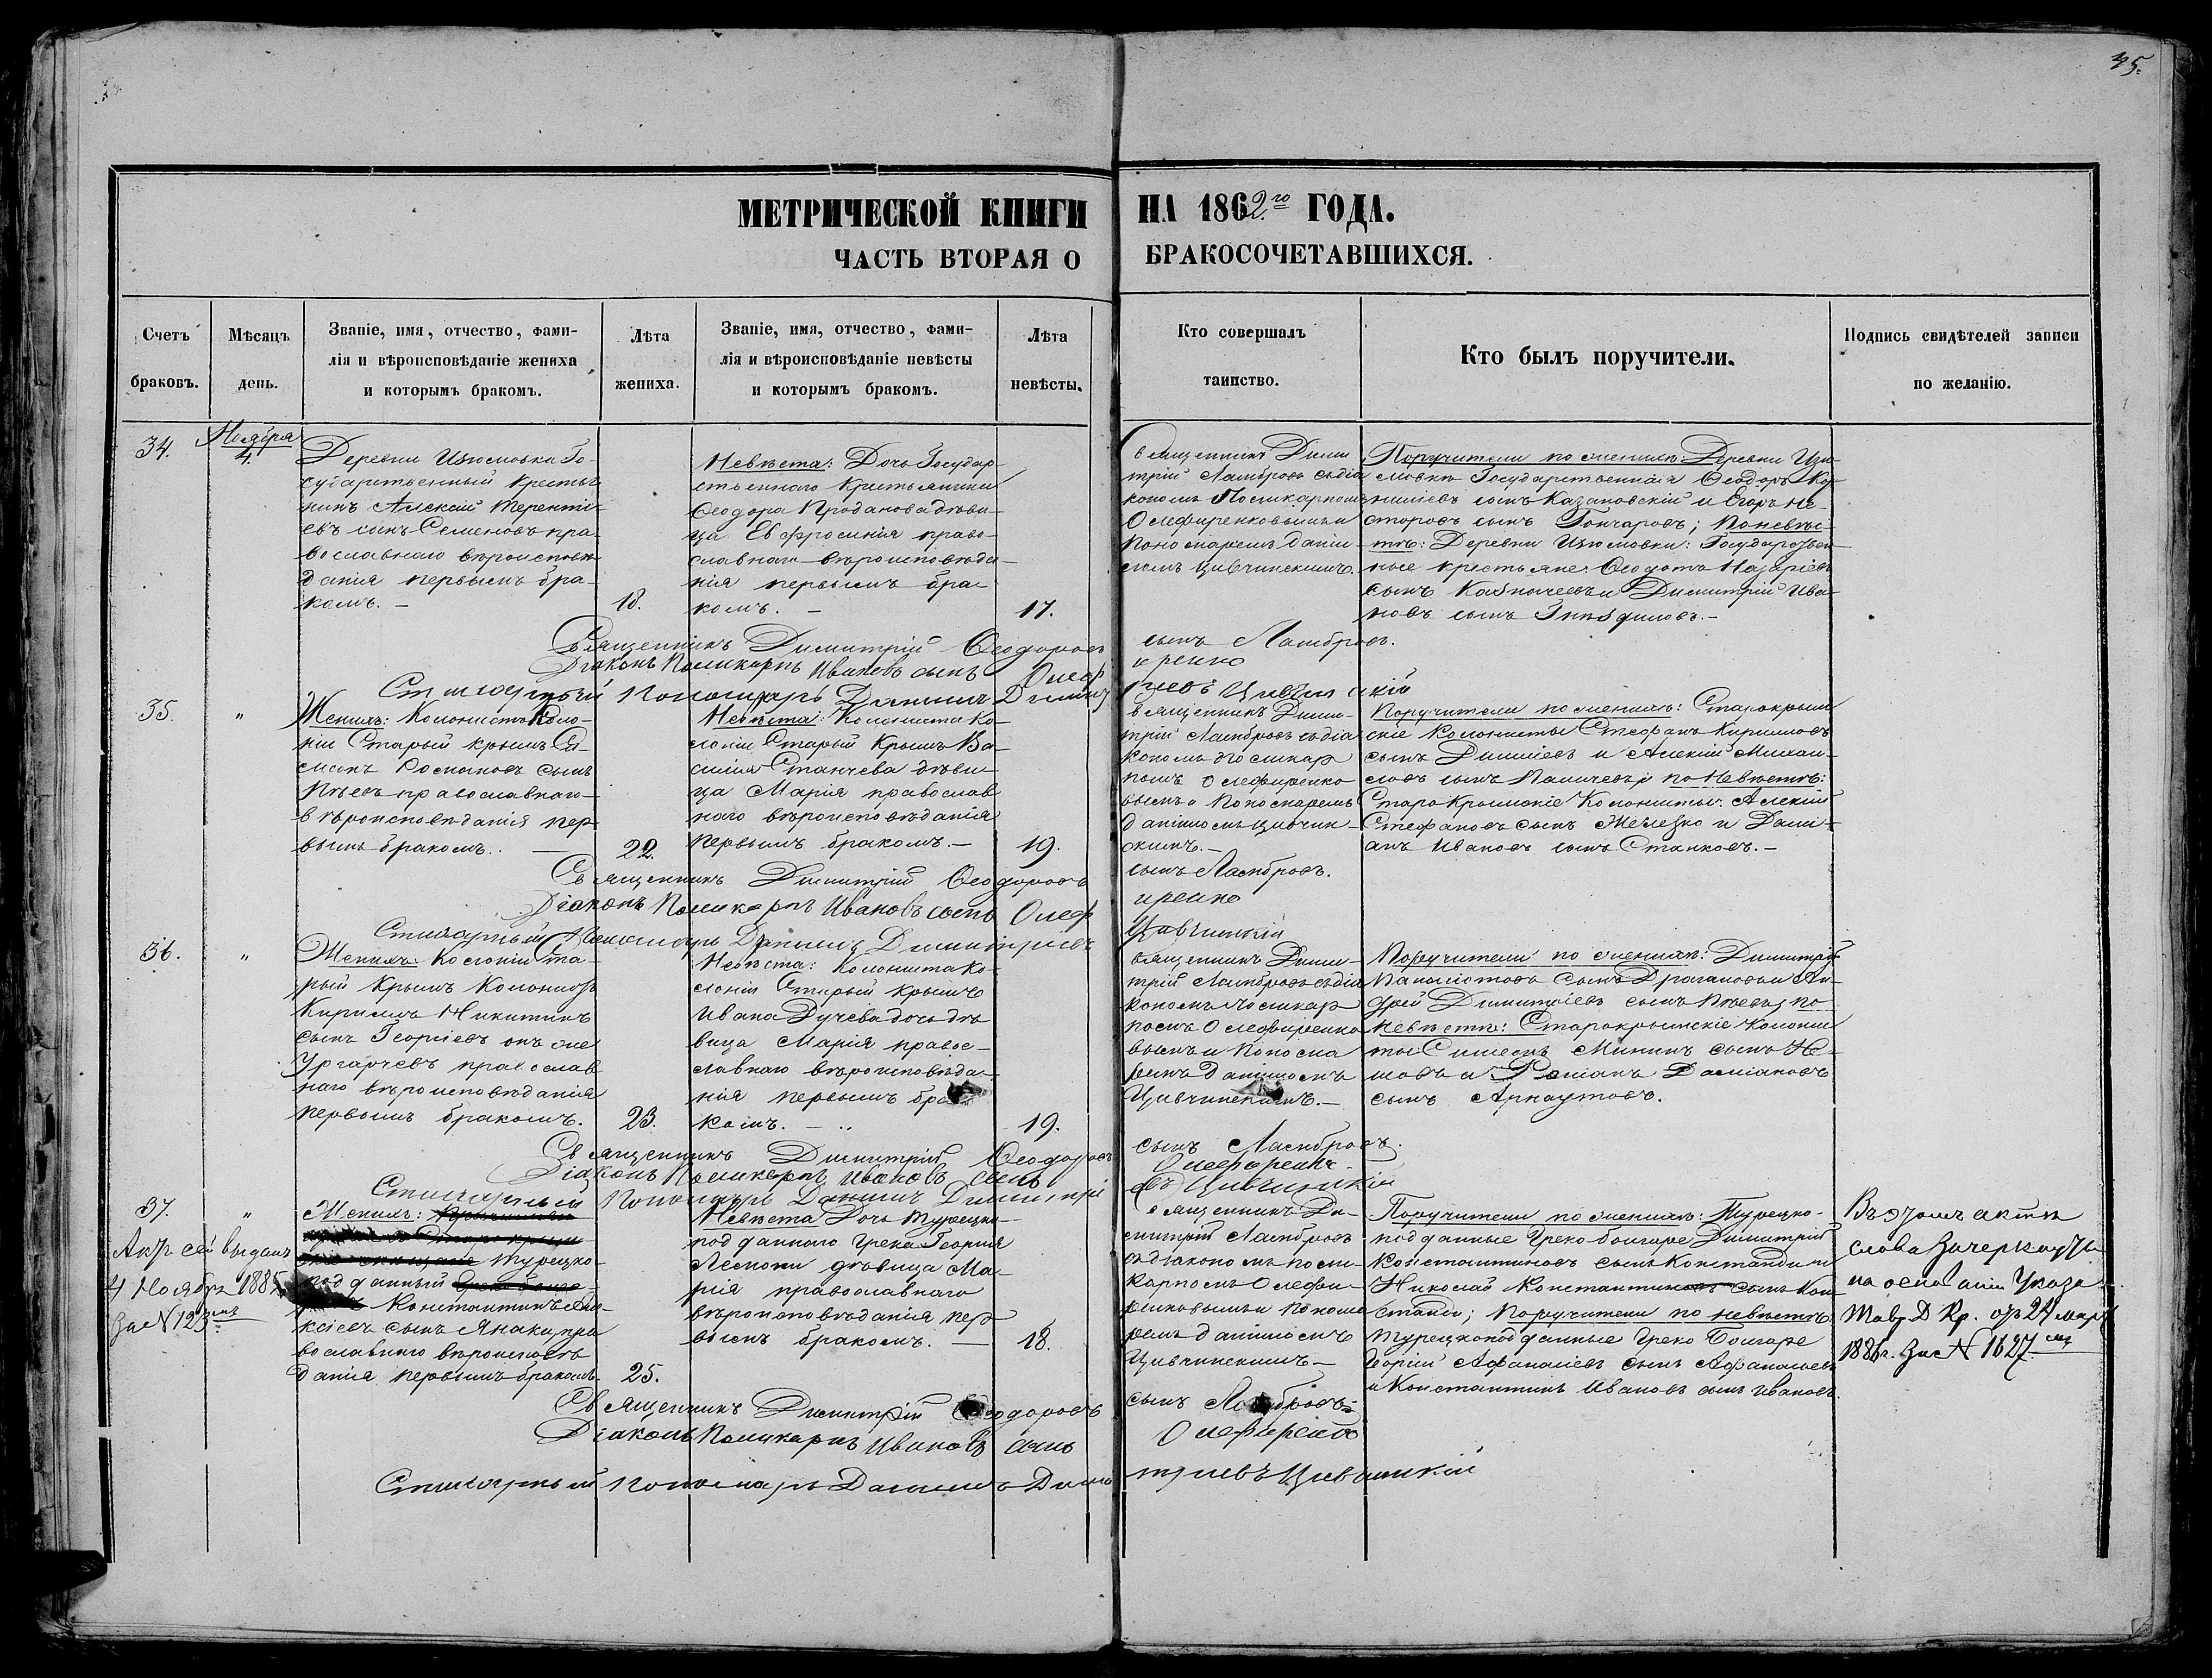 45.
МЕТРИЧЕСКОЙ КНИГИ НА 1862го ГОДА.
ЧАСТЬ ВТОРАЯ О БРАКОСОЧЕТАВШИХСЯ.
Счетъ браковъ.
Мѣсяцъ день.
Званіе, имя, отчество, фами-
лія и вѣроисповѣданіе жениха
и которымъ бракомъ.
Лѣта
жениха.
Званіе, имя, отчество, фами-
лія и вѣроисповѣданіе невѣсты
и которымъ бракомъ.
Лѣта
невѣсты.
Кто совершалъ
таинство.
Кто былъ поручители.
Подпись свидѣтелей записи
по желанію.
34.
Ноября
4.
Деревни Изюмовки Го-
сударственный крестья
нинъ Алексій Терентi-
евъ сынъ Семеновъ пра-
вославнаго вѣроисповѣ-
данія первымъ бра-
комъ. –
18.
Невѣста: Дочь Государ-
ственнаго крестьянина
Ѳеодора Проданова дѣви-
ца Евфросинія право-
славнаго вѣроисповѣда-
нія первымъ бра-
комъ. –
17.
Священникъ Дими
трій Ламбровъ съ діа
кономъ Поликарпомъ
Олефиренковымъ и
Пономаремъ Даніи-
ломъ Цивчинскимъ.
Поручители по женихѣ: Деревни Изю-
мовки Государственніи Ѳеодоръ Кор-
ниліевъ сынъ Казановскій и Егоръ Не-
стеровъ сынъ Гончаровъ; По невѣс-
тѣ: Деревни Изюмовки: Государствен-
ные крестьяне: Ѳеодотъ Назаріевъ
сынъ Казначеевъ и Димитрій Ива-
новъ сынъ Гнѣдиловъ. –
Священникъ Димитрій Ѳеодоровъ сынъ Ламбровъ.
Діаконъ Поликарпъ Ивановъ сынъ Олефиренко
Стихарный Пономарь Даніилъ Димитріевъ Цивчинскій
35.
"
Женихъ: Колонистъ Коло-
ніи Старый Крымъ Си-
меонъ Космановъ сынъ
Пѣевъ православнаго
вѣроисповѣданія пер-
вымъ бракомъ. –
22.
Невѣста: Колониста Ко-
лоніи Старый Крымъ Ва-
силія Станчева дѣви-
ца Марія православ
наго вѣроисповѣданія
первымъ бракомъ. –
19.
Священникъ Дими-
трій Ламбровъ съ діа
кономъ Поликар
помъ Олефиренко
вымъ и Пономаремъ
Даніиломъ Цивчин-
скимъ. –
Поручители по женихѣ: Старокрым
скіе Колонисты Стефанъ Кирилловъ
сынъ Димиіевъ и Алексій Михаи-
ловъ сынъ Паличевъ; по Невѣстѣ:
Старокрымскіе Колонисты: Алексій
Стефановъ сынъ Железко и Дамі-
анъ Ивановъ сынъ Станковъ. –
Священникъ Димитрій Ѳеодоровъ сынъ Ламбровъ.
Діаконъ Поликарпъ Ивановъ сынъ Олефиренко
Стихарный Пономарь Даніилъ Димитріевъ Цивчинскій
36.
"
Женихъ: Колоніи Ста-
рый Крымъ Колонистъ
Кириллъ Никитинъ
сынъ Георгіевъ онъ же
Ургарчевъ православ
наго вѣроисповѣданія
первымъ бракомъ.
23.
Невѣста: Колониста Ко-
лоніи Старый Крымъ
Ивана Дучева дочь дѣ
вица Марія правос-
лавнаго вѣроисповѣда-
нія первымъ бра
комъ. –
19.
Священникъ Дими-
трій Ламбровъ съ діа
кономъ Поликар
помъ Олефиренко
вымъ и Понома
ремъ Даніиломъ
Цивчинскимъ. –
Поручители по женихѣ: Димитрій
Панаіотовъ сынъ Драгановъ и Ан-
дрей Димитріевъ сынъ Пѣевъ; по
невѣстѣ: Старокрымскіе Колони
сты Симеонъ Мининъ сынъ
и Даміановъ
сынъ Арнаутовъ.
Священникъ Димитрій Ѳеодоровъ сынъ Ламбровъ.
Діаконъ Поликарпъ Ивановъ сынъ Олефиренко.
Стихарный Пономарь Даніилъ Димитріевъ Цивчинскій
37.
"
Актъ сей выданъ
4 Ноября 1885
За N 123мъ
Женихъ:
Турецко-
подданный
Константинъ Але-
ксіевъ сынъ Янаки, пра
вославнаго вѣроисповѣ
данія первымъ бракомъ.
25.
Невѣста Дочь Турецко-
подданнаго Грека Георгія
дѣвица Ма-
рія православнаго
вѣроисповѣданія пер
вымъ бракомъ. –
18.
Священникъ Ди-
митрій Ламбровъ
съ діакономъ Поли-
карпомъ Олефи-
ренковымъ и Понома
ремъ Даніиломъ
Цивчинскимъ –
Поручители по женихѣ: Турецко-
подданные Греко болгаре Димитрій
Константиновъ сынъ Констанди и
Николай Константиновъ сынъ Кон
станди; Поручители по невѣстѣ
Турецкоподданные Греко Болгаре
Георгій Аѳанасіевъ сынъ Аѳанасіевъ
и Константинъ Ивановъ сынъ Ивановъ.
Въ этомъ актѣ
слова Зачеркнуты
на основаніи Указа
Тавр. Д. К. отъ 24 марта
1886 г. за N 1627мъ
Священникъ Димитрій Ѳеодоровъ сынъ Ламбровъ.
Діаконъ Поликарпъ Ивановъ сынъ Олефиренко
Стихарный Пономарь Даніилъ Димитріевъ Цивчинскій